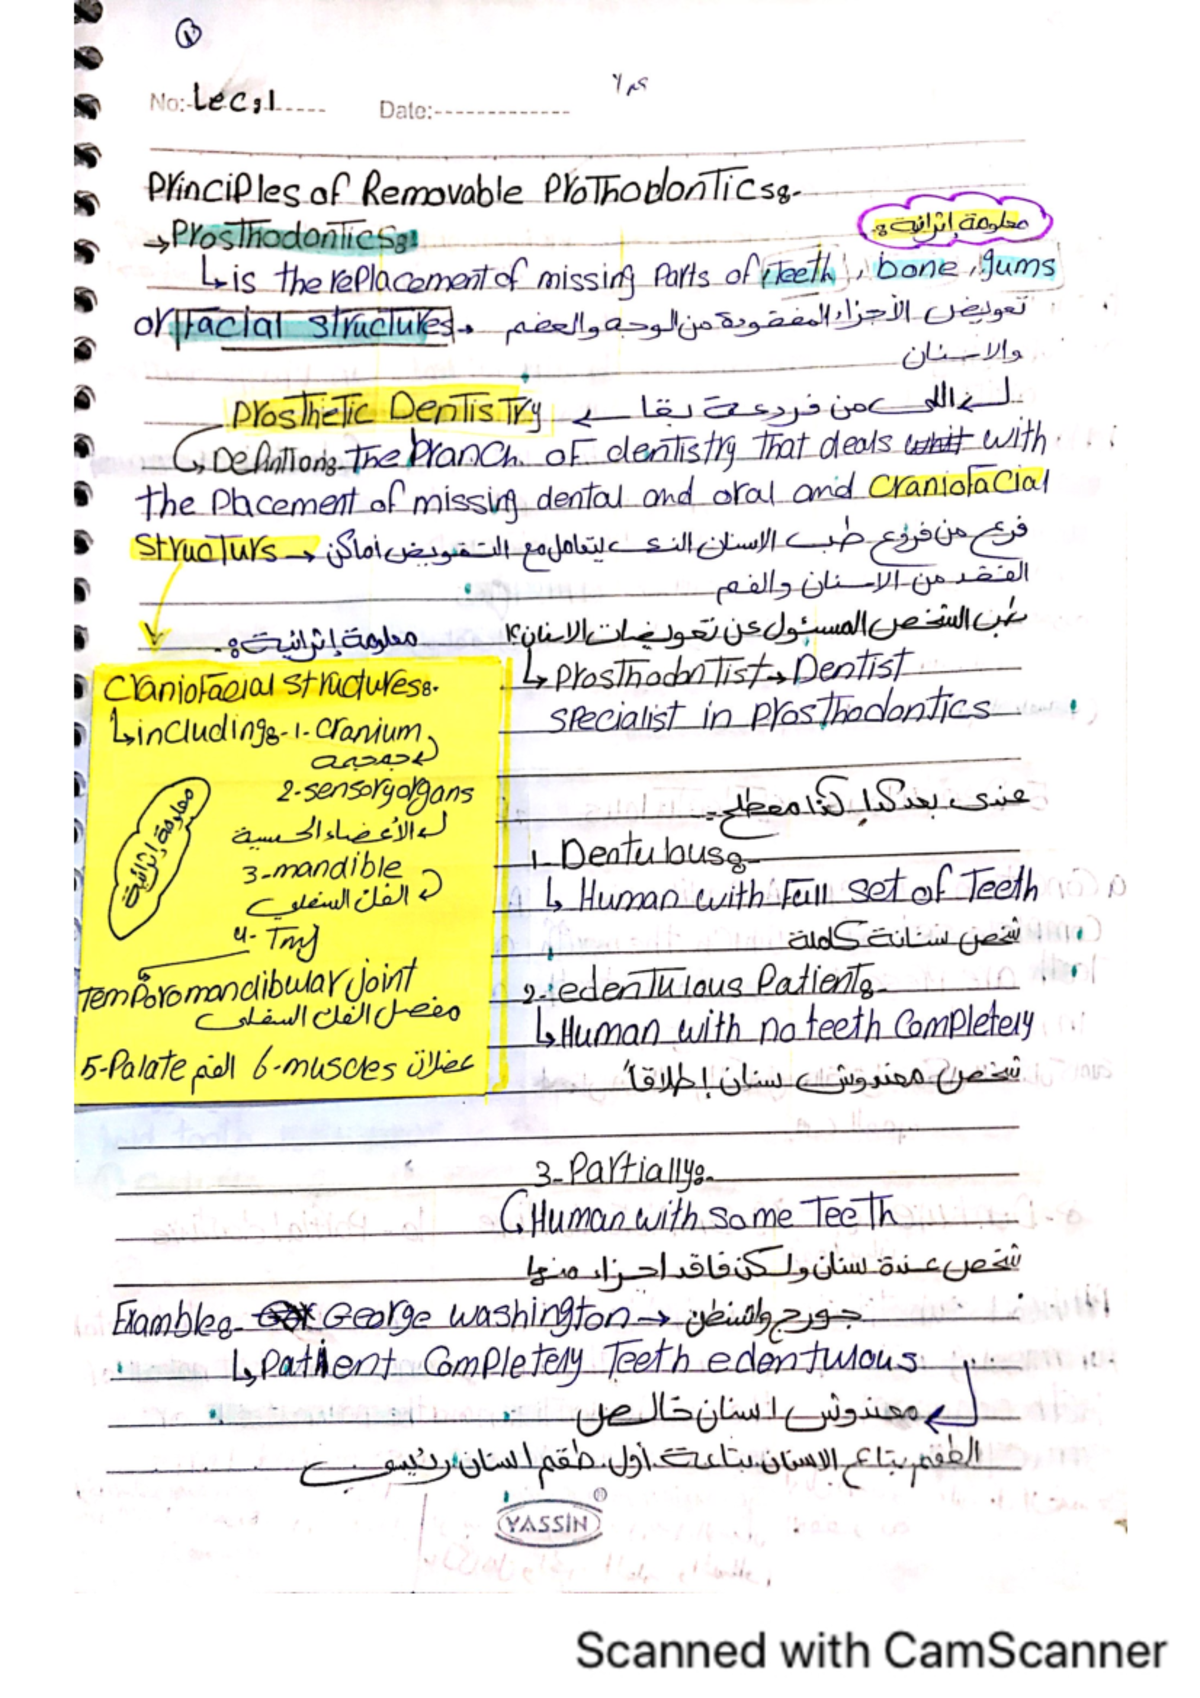 ①
No:- Lec:1 ----- Date:-------------
Principles of Removable Prothodontics:-
معلومة إثرائية:
→ Prosthodontics:
↳ is the replacement of missing parts of teeth, bone, gums
or facial structures. تعويض الأجزاء المفقودة من الوجه والعضم
والاسنان
Prosthetic Dentistry ← من فرع بقا
↳ Defintion: The branch of dentistry that deals with
the placement of missing dental and oral and craniofacial
structurs → فرع من فروع طب الاسنان الذى يتعامل مع التعويض أماكن
الفقد من الاسنان والفم
طب الشخص المسئول عن تعويضات الاسنان؟!
↳ Prosthodontist → Dentist
specialist in prosthodontics
معلومة إثرائية:
Craniofacial structures:-
↳ including:- 1- Cranium
جمجمة
2-sensory organs
الأعضاء الحسية
3-mandible
الفك السفلى
4- Tmj
Temporomandibular joint
مفصل الفك السفلى
5-Palate الفم 6-muscles عضلات
معلومة إثرائية
عندى بعد كدا كذا مصطلح:-
1- Dentubus:-
↳ Human with Full set of Teeth
شخص سنانة كاملة
2- edentulous Patient:-
↳ Human with no teeth completely
شخص معندوش سنان إطلاقاً
3-Partially:-
↳ Human with some Teeth
شخص عندة سنان ولكن فاقد اجزاء منها
Examble:- George washington → جورج واشنطن
↳ Patient Completely Teeth edentulous
معندوش اسنان خالص
الطقم بتاع الاسنان بتاعة أول طقم اسنان
YASSIN
Scanned with CamScanner